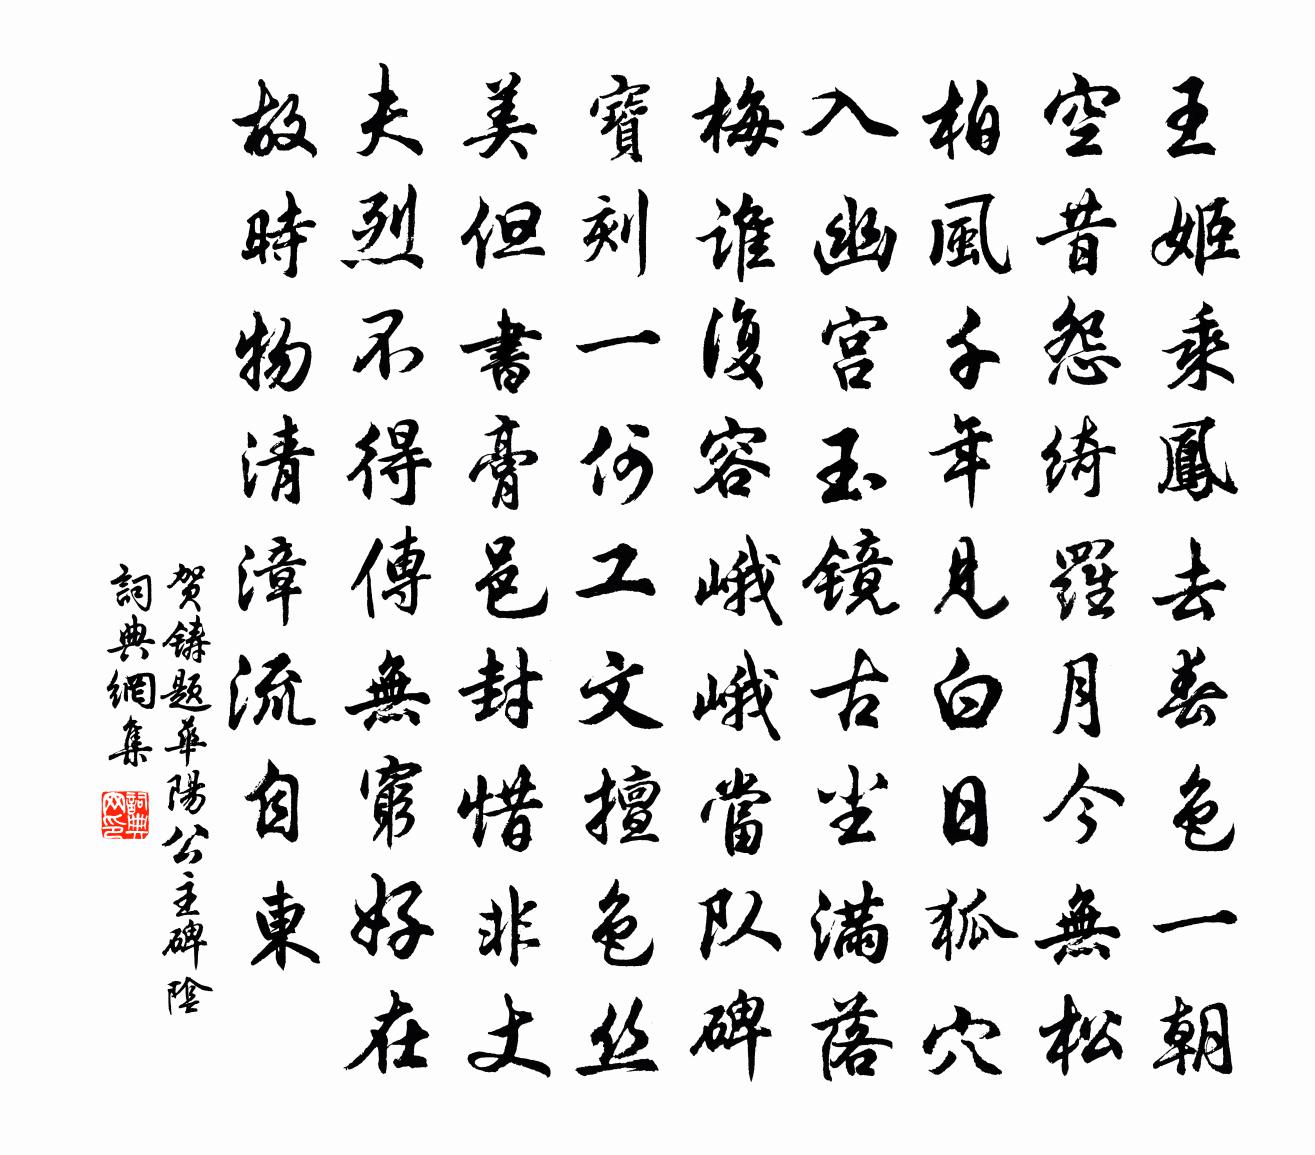 王姬乘鳳去春色一朝
空昔怨綺羅月今無松
柏風千年見白日狐穴
入幽宮玉鏡古坐滿落
梅誰復容峨峨當队碑
寶刻一何工文擅色丝
美但書膏邑封惜非丈
夫烈不得傳無窮好在
故時物清漳流自東
贺鑄題華陽公主碑陰
詞典網集
詞典